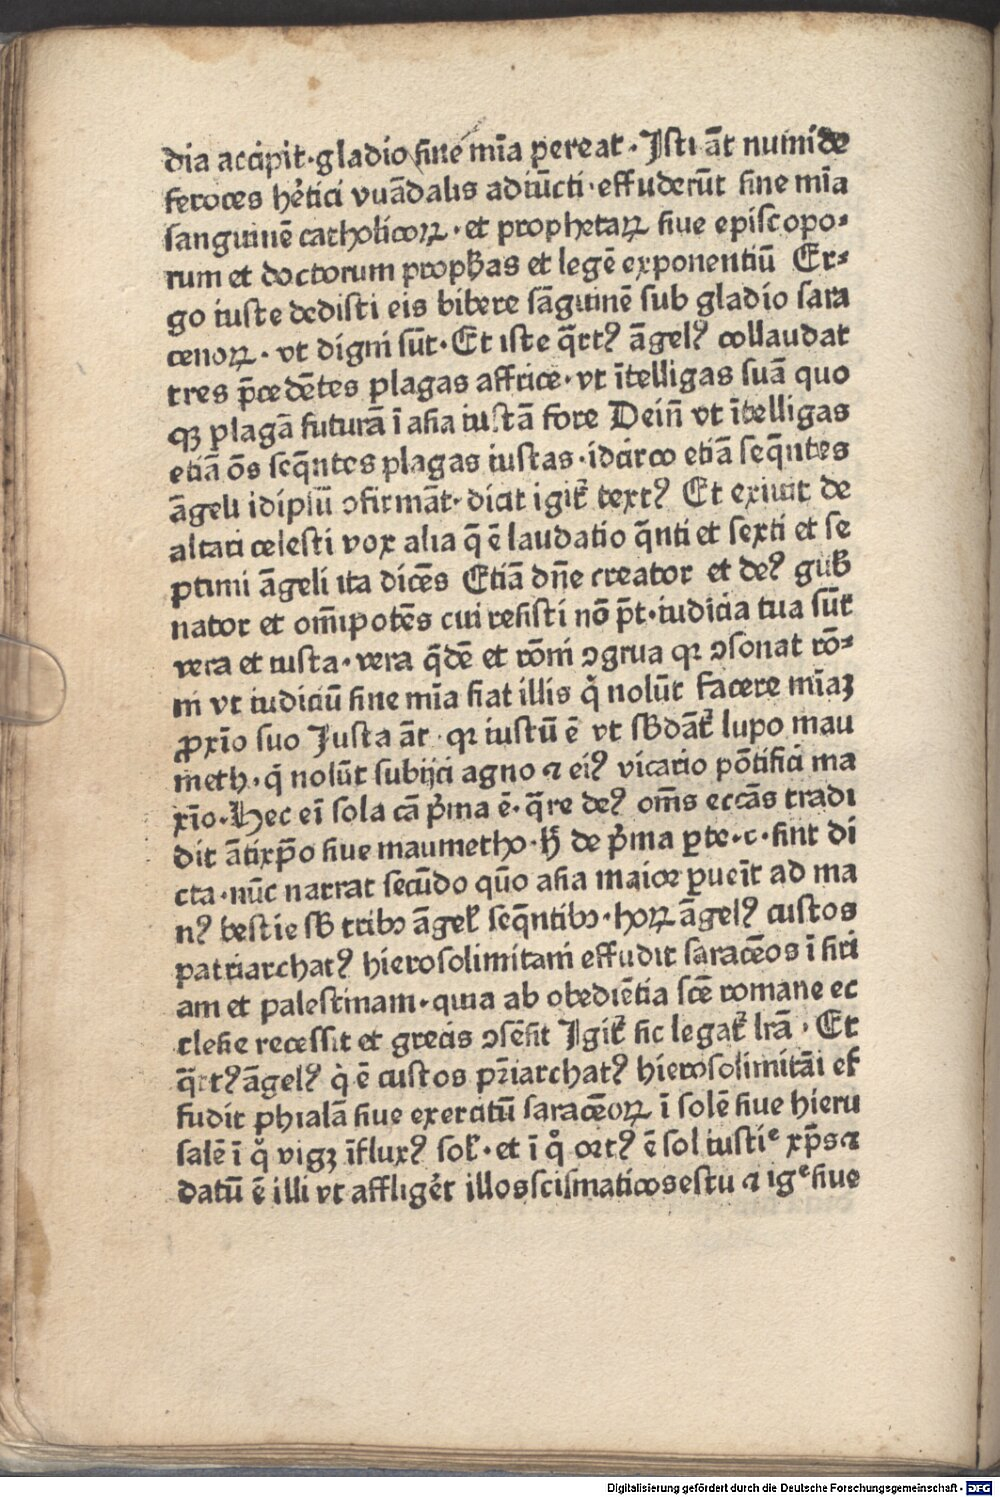 dia accipit·gladio sine mīa pereat·Isti āt numide
feroces hẻtici vuādalis adiūcti·effuderūt sine mīa
sanguinē catholicoꝝ·et prophetaꝝ siue episcopo⸗
rum et doctorum prophꝫas et legē exponentiū Er⸗
go iuste dedisti eis bibere sāguinē sub gladio sara
cenoꝝ·vt digni sūt·Et iste q̄rtꝰ āgelꝰ collaudat
tres p̄cedētes plagas affrice·vt ītelligas suā quo
qꝫ plagā futurā ī asia iustā fore Dein̄ vt ītelligas
etiā oēs seq̄ntes plagas iustas·idcirco etiā seq̄ntes
āgeli idipsū ꝯfirmāt·dicit igit̉ textꝰ Et exiuit de
altari celesti vox alia q̄ ē laudatio q̄nti et sexti et se
ptimi āgeli ita dicēs Etiā dn̄e creator et deꝰ gub̉
nator et om̄ipotēs cui resisti nō p̄t·iudicia tua sūt
vera et iusta·vera q̄dē et rōni ꝯgrua qꝛ ꝯsonat rō⸗
ni vt iudiciū sine mīa fiat illis q̇ nolūt facere mīaꝫ
ꝓxīo suo Iusta āt·qꝛ iustū ē vt sb̄dāt̉ lupo mau
meth·q̇ nolūt subijci agno ⁊ eiꝰ vicario pōtifici ma
xīo·Hec eī sola cā p̉ma ē·q̄re deꝰ om̄s eccās tradi
dit ātixp̄o siue maumetho·h̄ de p̉ma ꝑte·c·sint di
cta·nūc narrat secūdo quō asia maior ꝑueīt ad ma
nꝰ bestie sb̄ tribꝰ āgel̉ seq̄ntibꝰ·hoꝝ āgelꝰ custos
patriarchatꝰ hierosolimitani effudit saracēos ī siri
am et palestinam·quia ab obediētia scē romane ec
clesie recessit et grecis ꝯsēsit Igit̉ sic legat̉ lrā·Et
q̄rtꝰ āgelꝰ q̇ ē custos pr̄iarchatꝰ hierosolimitāi ef
fudit phialā siue exercitū saracēoꝝ ī solē siue hieru
salē ī q̊ vigꝫ īfluxꝰ sol̉·et ī q̊ ortꝰ ē sol iustiᵉ xp̄s ⁊
datū ē illi vt affligẻt illos scismaticos estu ⁊ igᵉ siue
Digitalisierung gefördert durch die Deutsche Forschungsgemeinschaft - DFG